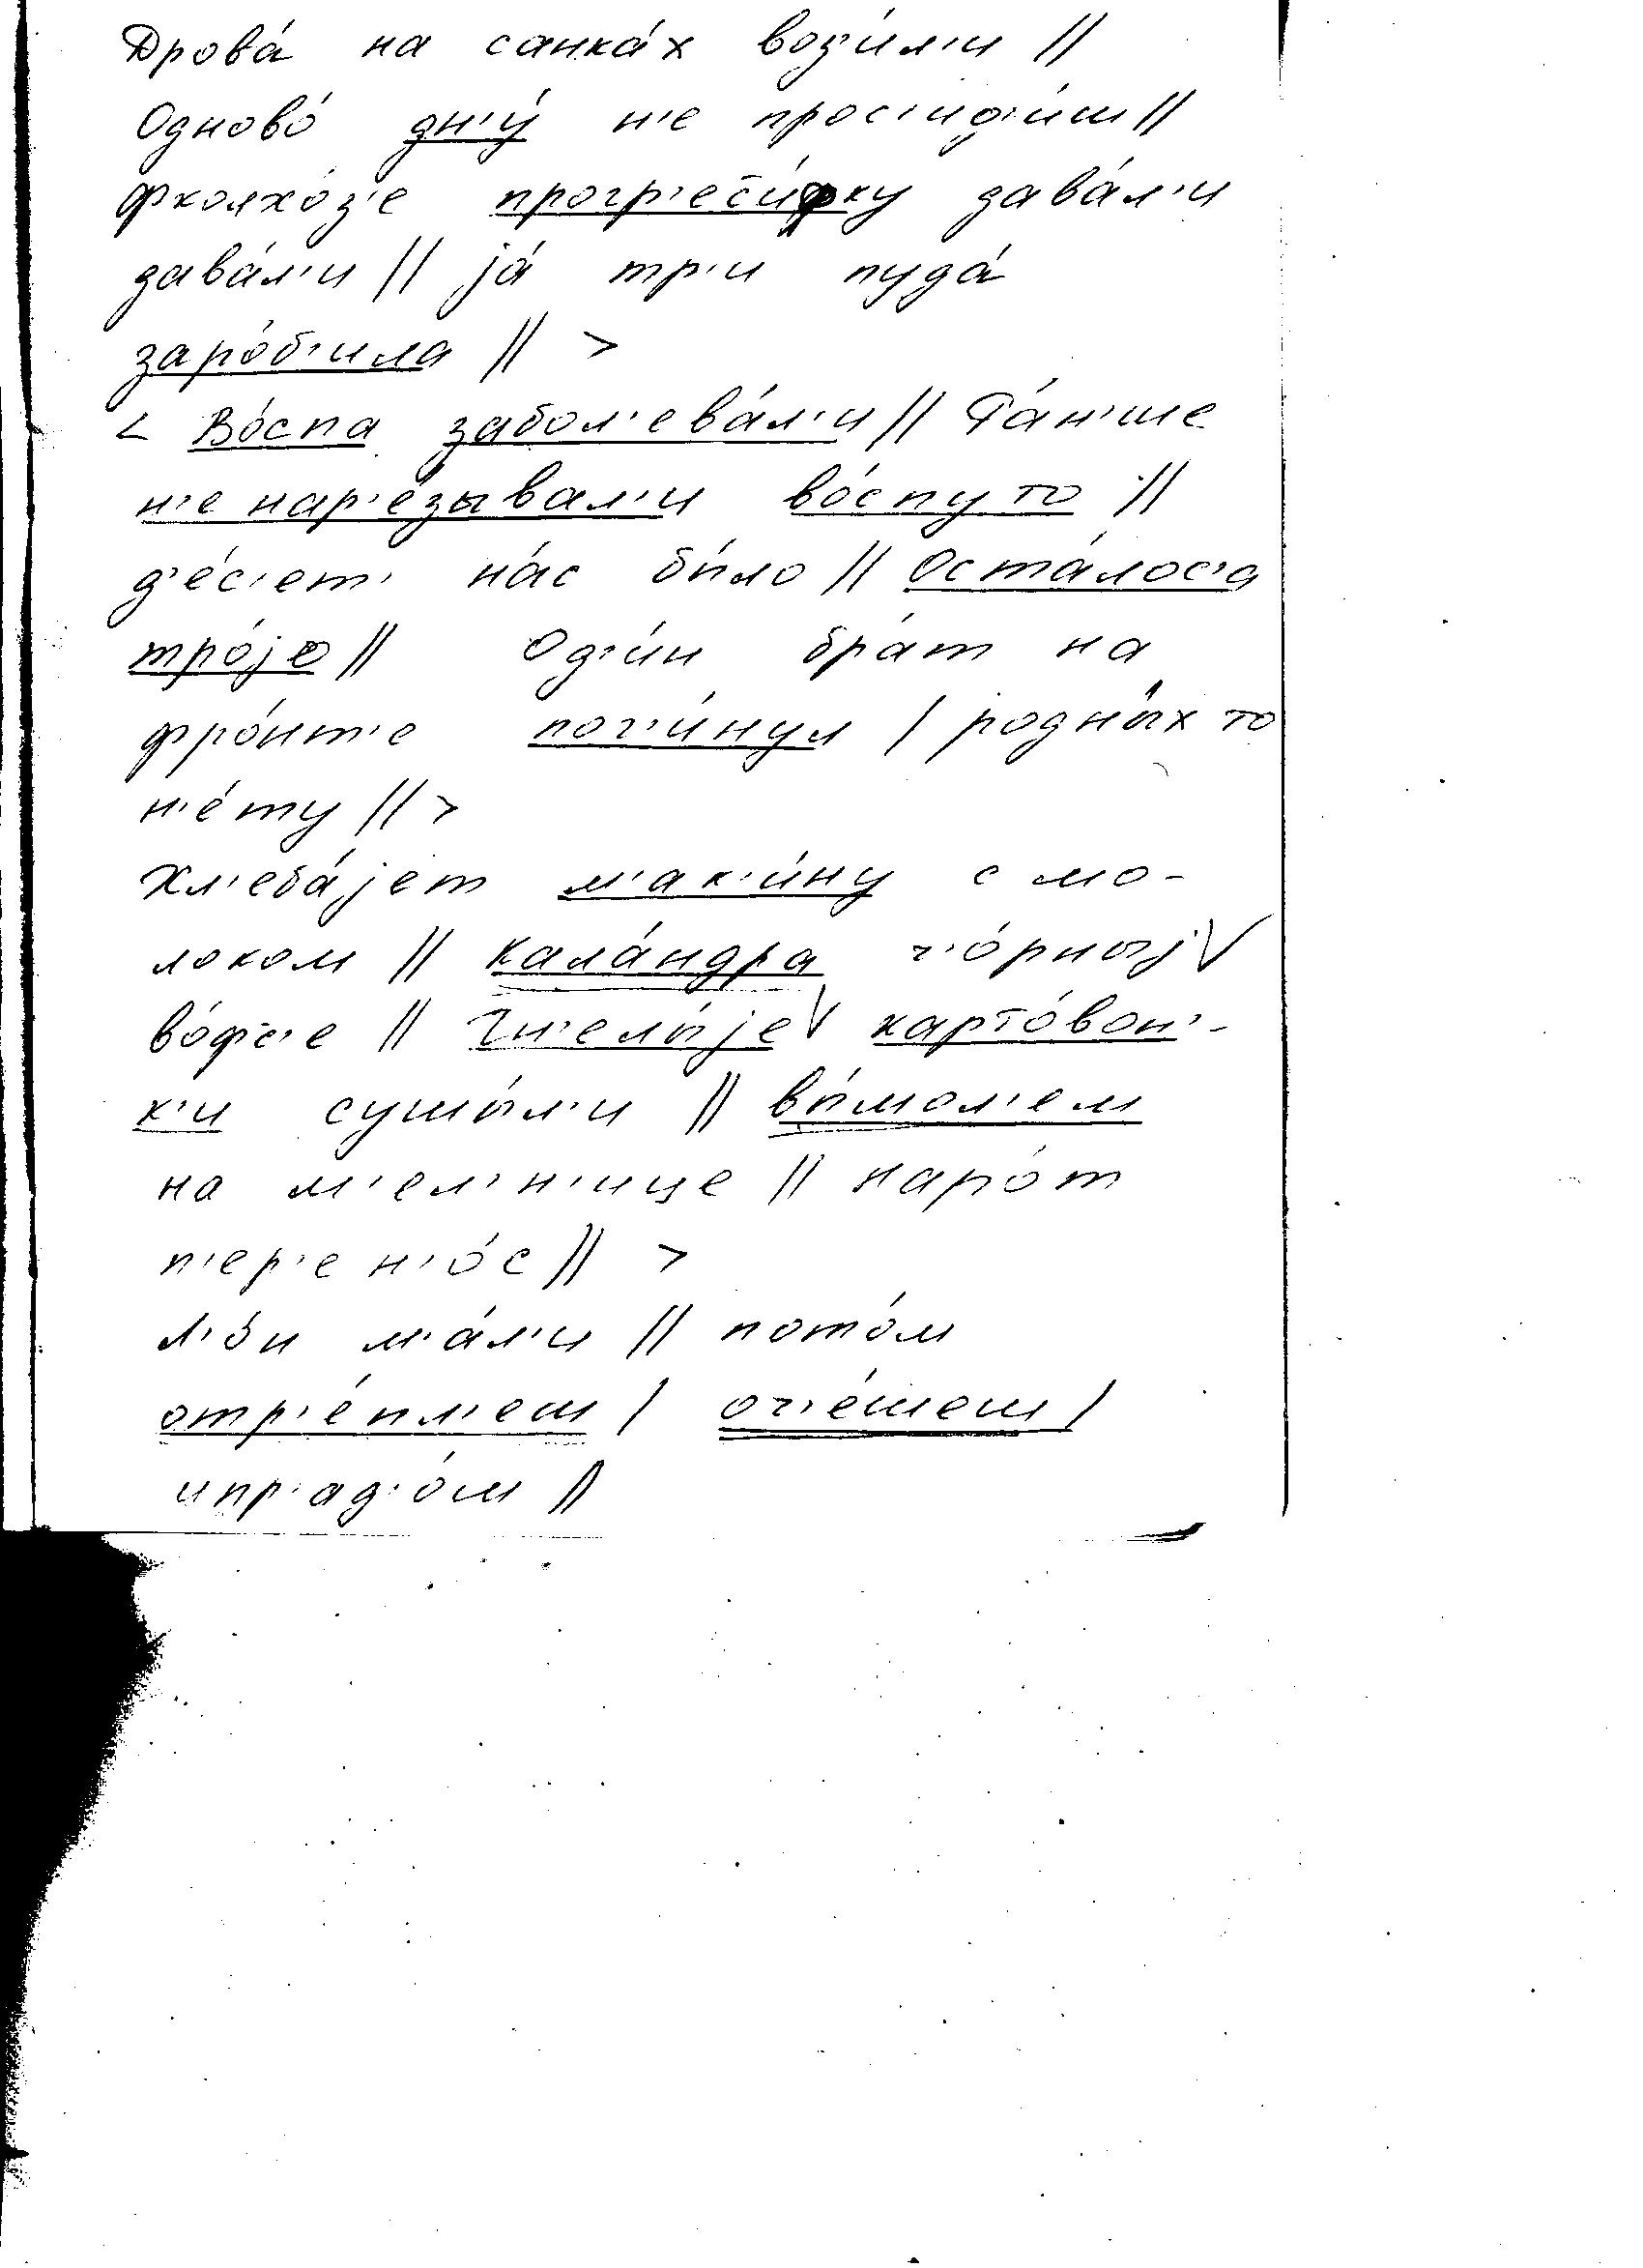 Дрова́ на санка́х воз'и́л'и //
Одново́ дн'у́ н'е прос'ид'и́ш //
фколхо́з'е прогр'еси́фку дава́л'и
дава́л'и // jа́ тр'и пуда́
заро́б'ила // >
< Во́спа забол'ева́л'и // Ра́н'ше
н'е нар'е́зывал'и во́спу то //
д'е́с'ет' на́с бы́ло // Оста́лос'а
тро́jо // Од'и́н бра́т на
фро́нт'е пог'и́нул / родны́х то
н'е́ту // >
Хл'еба́jет м'ак'и́ну с мо-
локом // кала́ндра ч'о́рныj V
во́фс'е // Гн'елы́jе V карто́вон'-
к'и сушы́л'и // вы́мол'ем
на м'ел'н'ице // наро́т
п'ер'ен'о́с // >
Л'о́н м'а́л'и // пото́м
отр'е́пл'еш / оч'е́шеш /
ипр'ад'о́м //